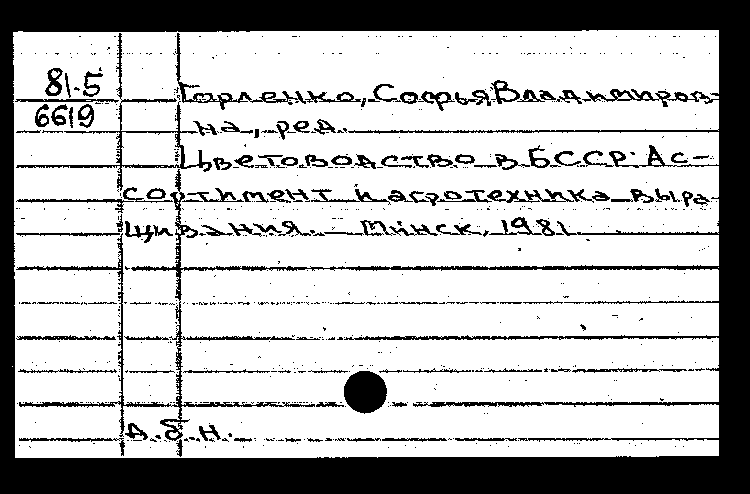 81.5
6619
Горленко, Софья Владимиров-
на, ред.
Цветоводство в БССР: Ас-
сортимент и агротехника выра-
щивания. — Минск, 1981
А.б.н.